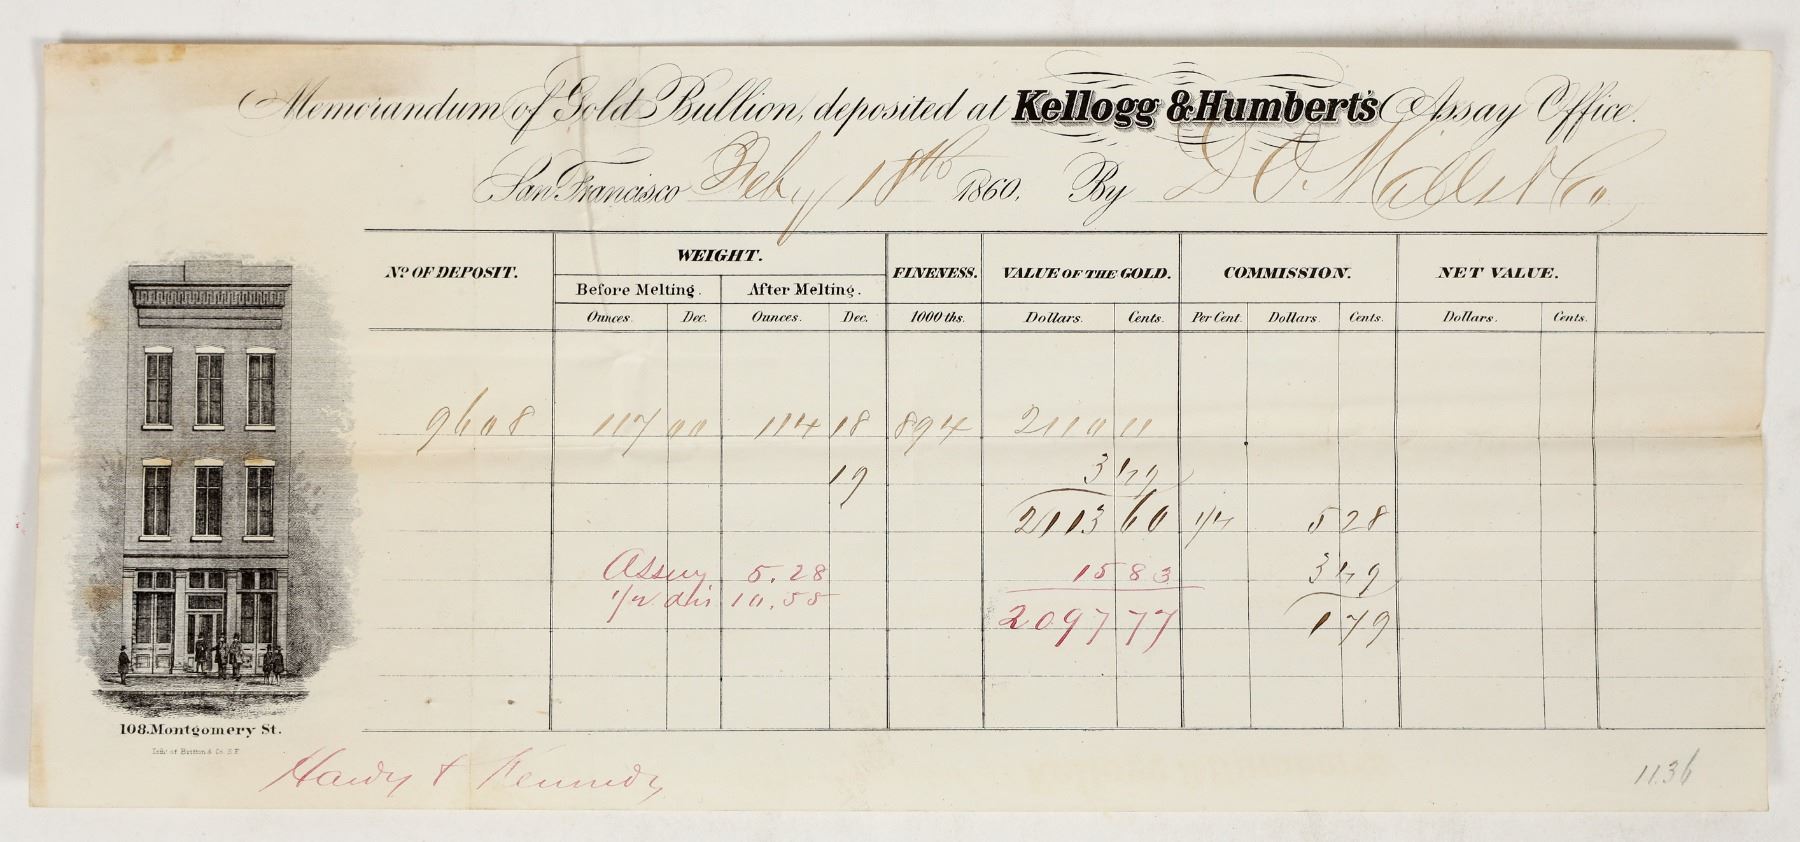 Memorandum of Gold Bullion, deposited at Kellogg & Humbert's Assay Office.
San Francisco Feby 18th 1860. By D O Mills & Co
No. OF DEPOSIT. WEIGHT. FINENESS. VALUE OF THE GOLD. COMMISSION. NET VALUE.
Before Melting. After Melting.
Ounces. Dec. Ounces. Dec. 1000 ths. Dollars. Cents. Per Cent. Dollars. Cents. Dollars. Cents.
9608 117 00 114 18 894 2110 11
19 3 49
2113 60 1/4 5 28
Assay 5.28 15 83 3 49
1/2 dis 10.55
2097 77 1 79
108. Montgomery St.
Lith. of Britton & Co. S.F.
Hardy & Kennedy
1136